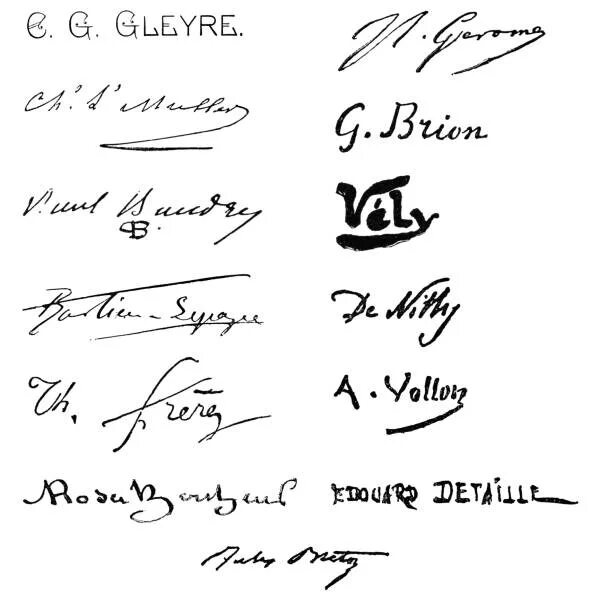 C. G. GLEYRE.
J L Gerome
Ch.s L.s Muller
G. Brion
Paul Baudry
B
Vély
Bastien-Lepage
De Nittis
Th. Frère
A. Vollon
Rosa Bonheur
EDOUARD DETAILLE
Jules Breton